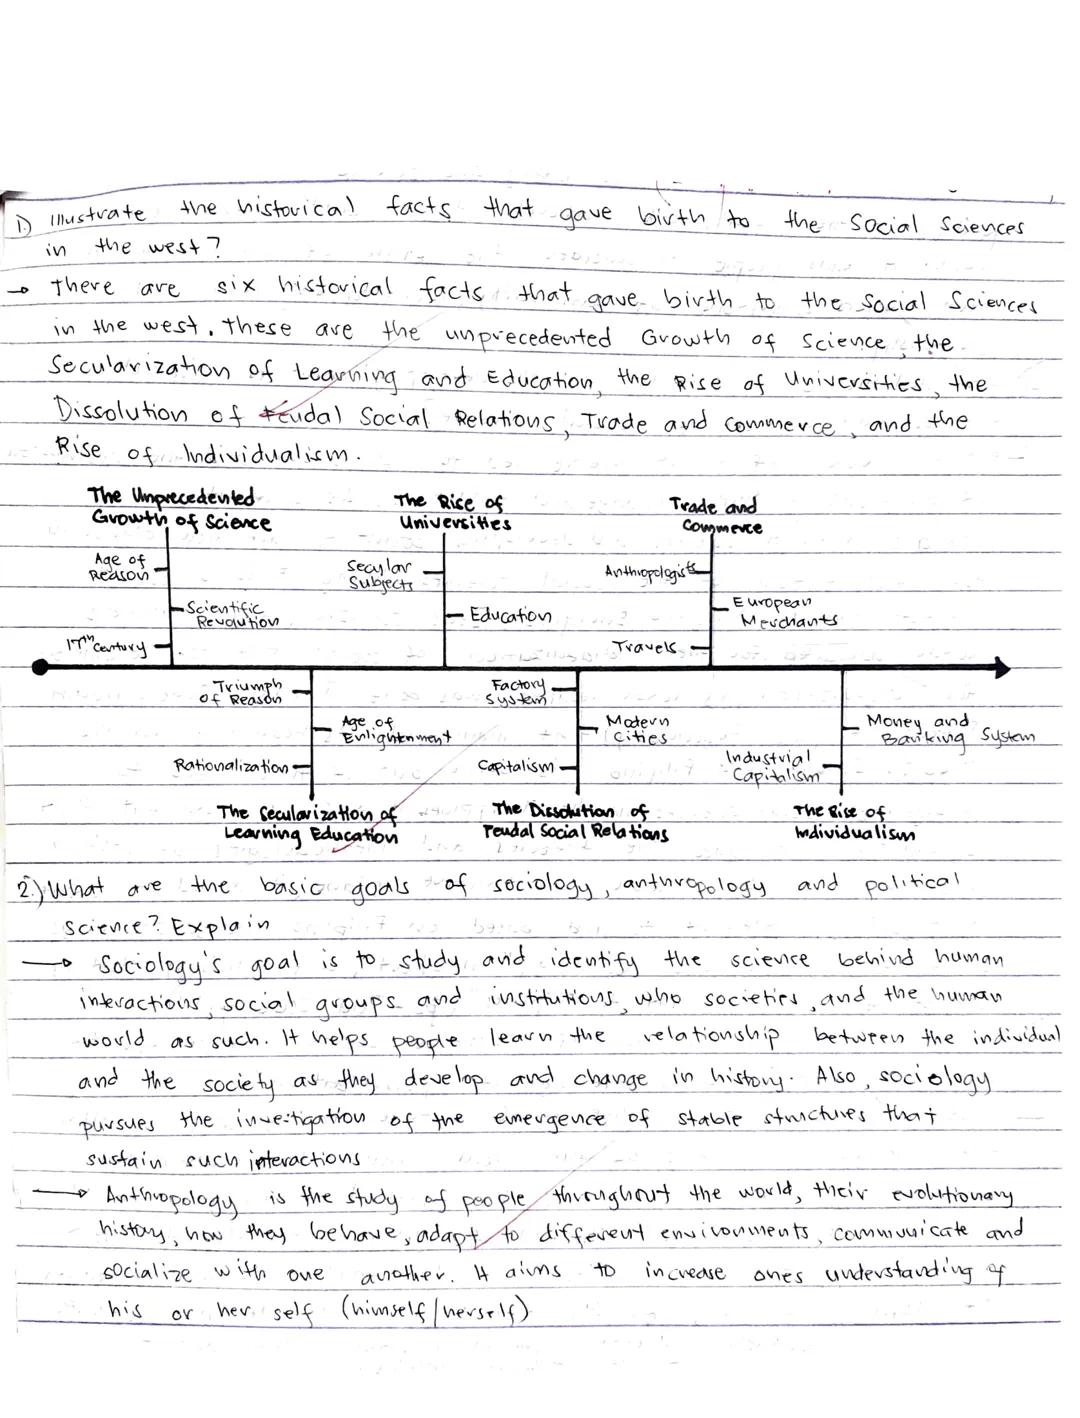 1.) Illustrate the historical facts that gave birth to the Social Sciences
in the west?
→ There are six historical facts that gave birth to the Social Sciences
in the west. These are the unprecedented Growth of Science, the
Secularization of Learning and Education, the Rise of Universities, the
Dissolution of Feudal Social Relations, Trade and Commerce, and the
Rise of Individualism.
The Unprecedented
Growth of Science
Age of
Reason
Scientific
Revolution
17th Century
The Rise of
Universities
Secular
Subjects
Education
Trade and
Commerce
Anthropologists
European
Merchants
Travels
Triumph
of Reason
Age of
Enlightenment
Rationalization
The Secularization of
Learning Education
Factory
System
Modern
Cities
Capitalism
The Dissolution of
Feudal Social Relations
Money and
Banking System
Industrial
Capitalism
The Rise of
Individualism
2.) What are the basic goals of sociology, anthropology and political
science? Explain
→ Sociology's goal is to study and identify the science behind human
interactions, social groups and institutions, who societies, and the human
world as such. It helps people learn the relationship between the individual
and the society as they develop and change in history. Also, sociology
pursues the investigation of the emergence of stable structures that
sustain such interactions
→ Anthropology is the study of people throughout the world, their evolutionary
history, how they behave, adapt to different environments, communicate and
socialize with one another. It aims to increase ones understanding of
his or her self (himself/herself)